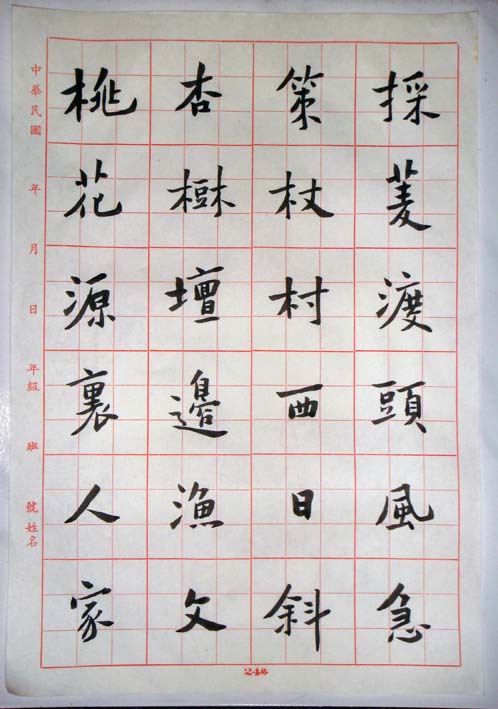 採菱渡頭風急
策杖村西日斜
杏樹壇邊漁文
桃花源裏人家
中華民國 年 月 日 年級 班 號 姓名